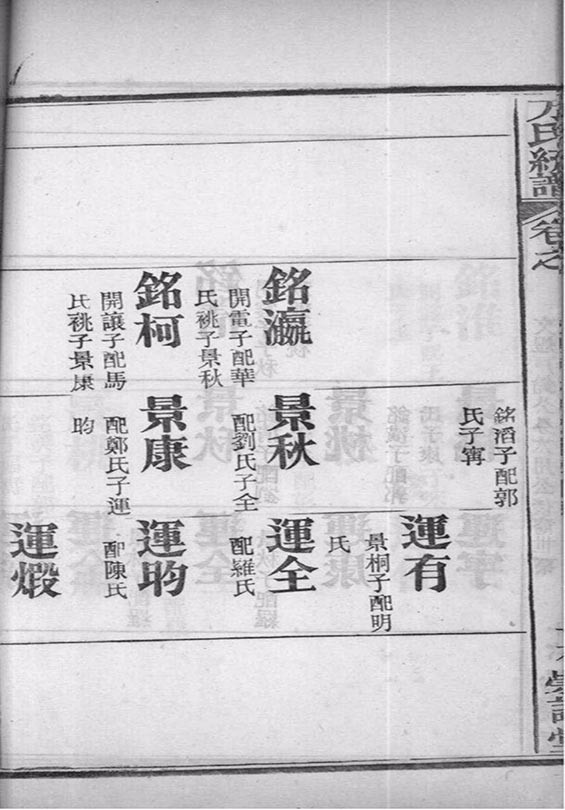 氏統譜
卷之
銘滔子配郭
氏子寗
運有
景桐子配明
氏
銘瀛
開電子配華
氏祧子景秋
景秋
配劉氏子全
運全
配羅氏
銘柯
開讓子配馬
氏祧子景康
景康
配鄭氏子運
昀
運昀
配陳氏
運煅